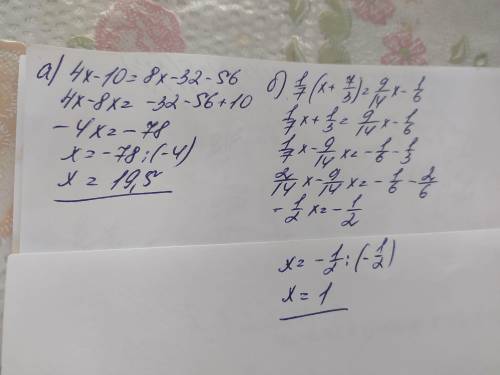 а) 4x-10=8x-32-56
4x-8x=-32-56+10
-4x=-78
x=-78:(-4)
x=19,5
б) 1/7(x+7/3)=9/14x-1/6
1/7x+1/3=9/14x-1/6
1/7x-9/14x=-1/6-1/3
2/14x-9/14x=-1/6-2/6
-1/2x=-1/2
x=-1/2:(-1/2)
x=1